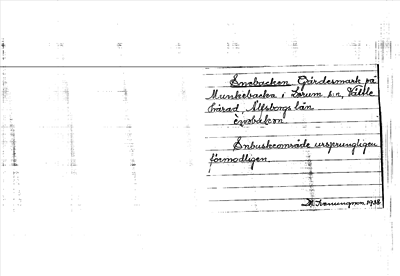 Enebacken Gärdesmark på
Munkebacka i Lerum sn, Vättle
härad, Älfsborgs län
ènəbakən
Enbuskeområde ursprungligen
förmodligen.
1938